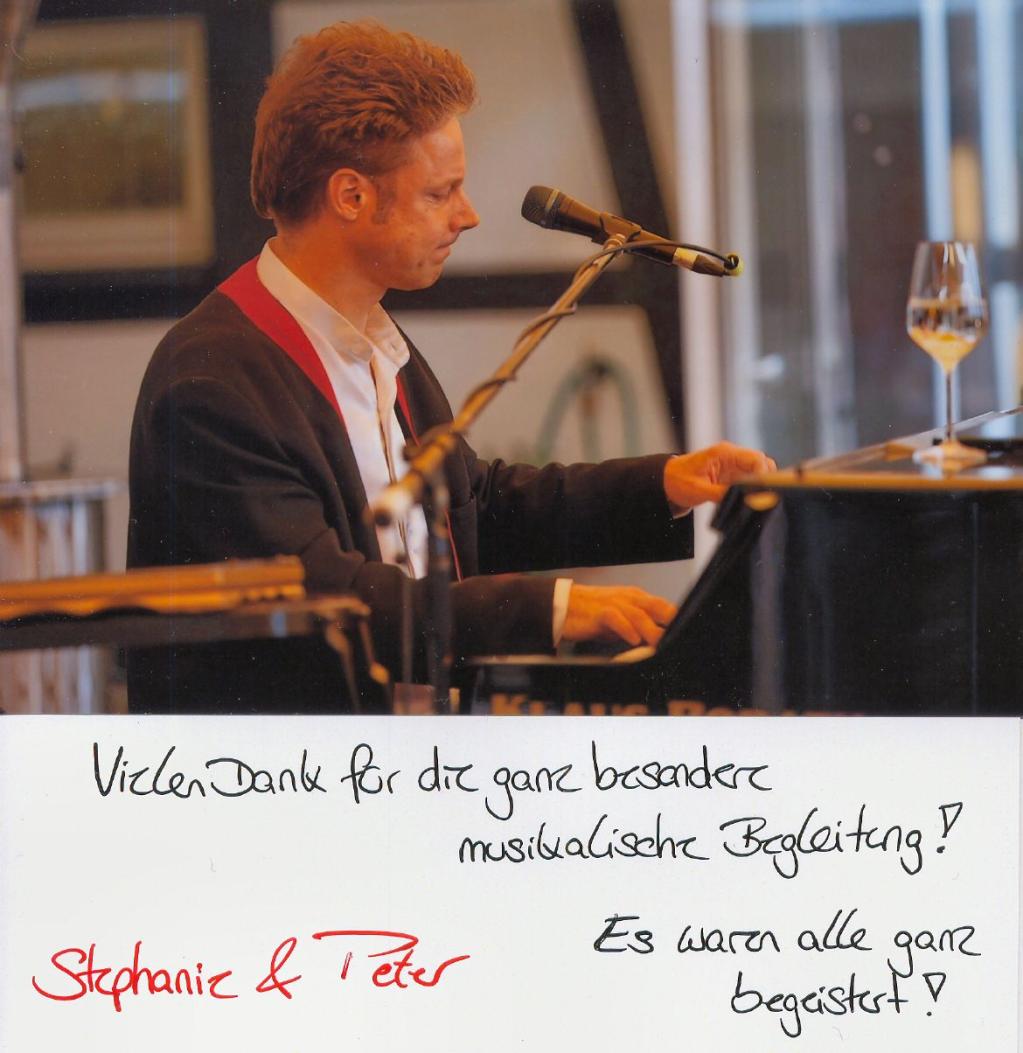 KLAUS
Vielen Dank für die ganz besondere
musikalische Begleitung!
Es waren alle ganz
begeistert!
Stephanie & Peter